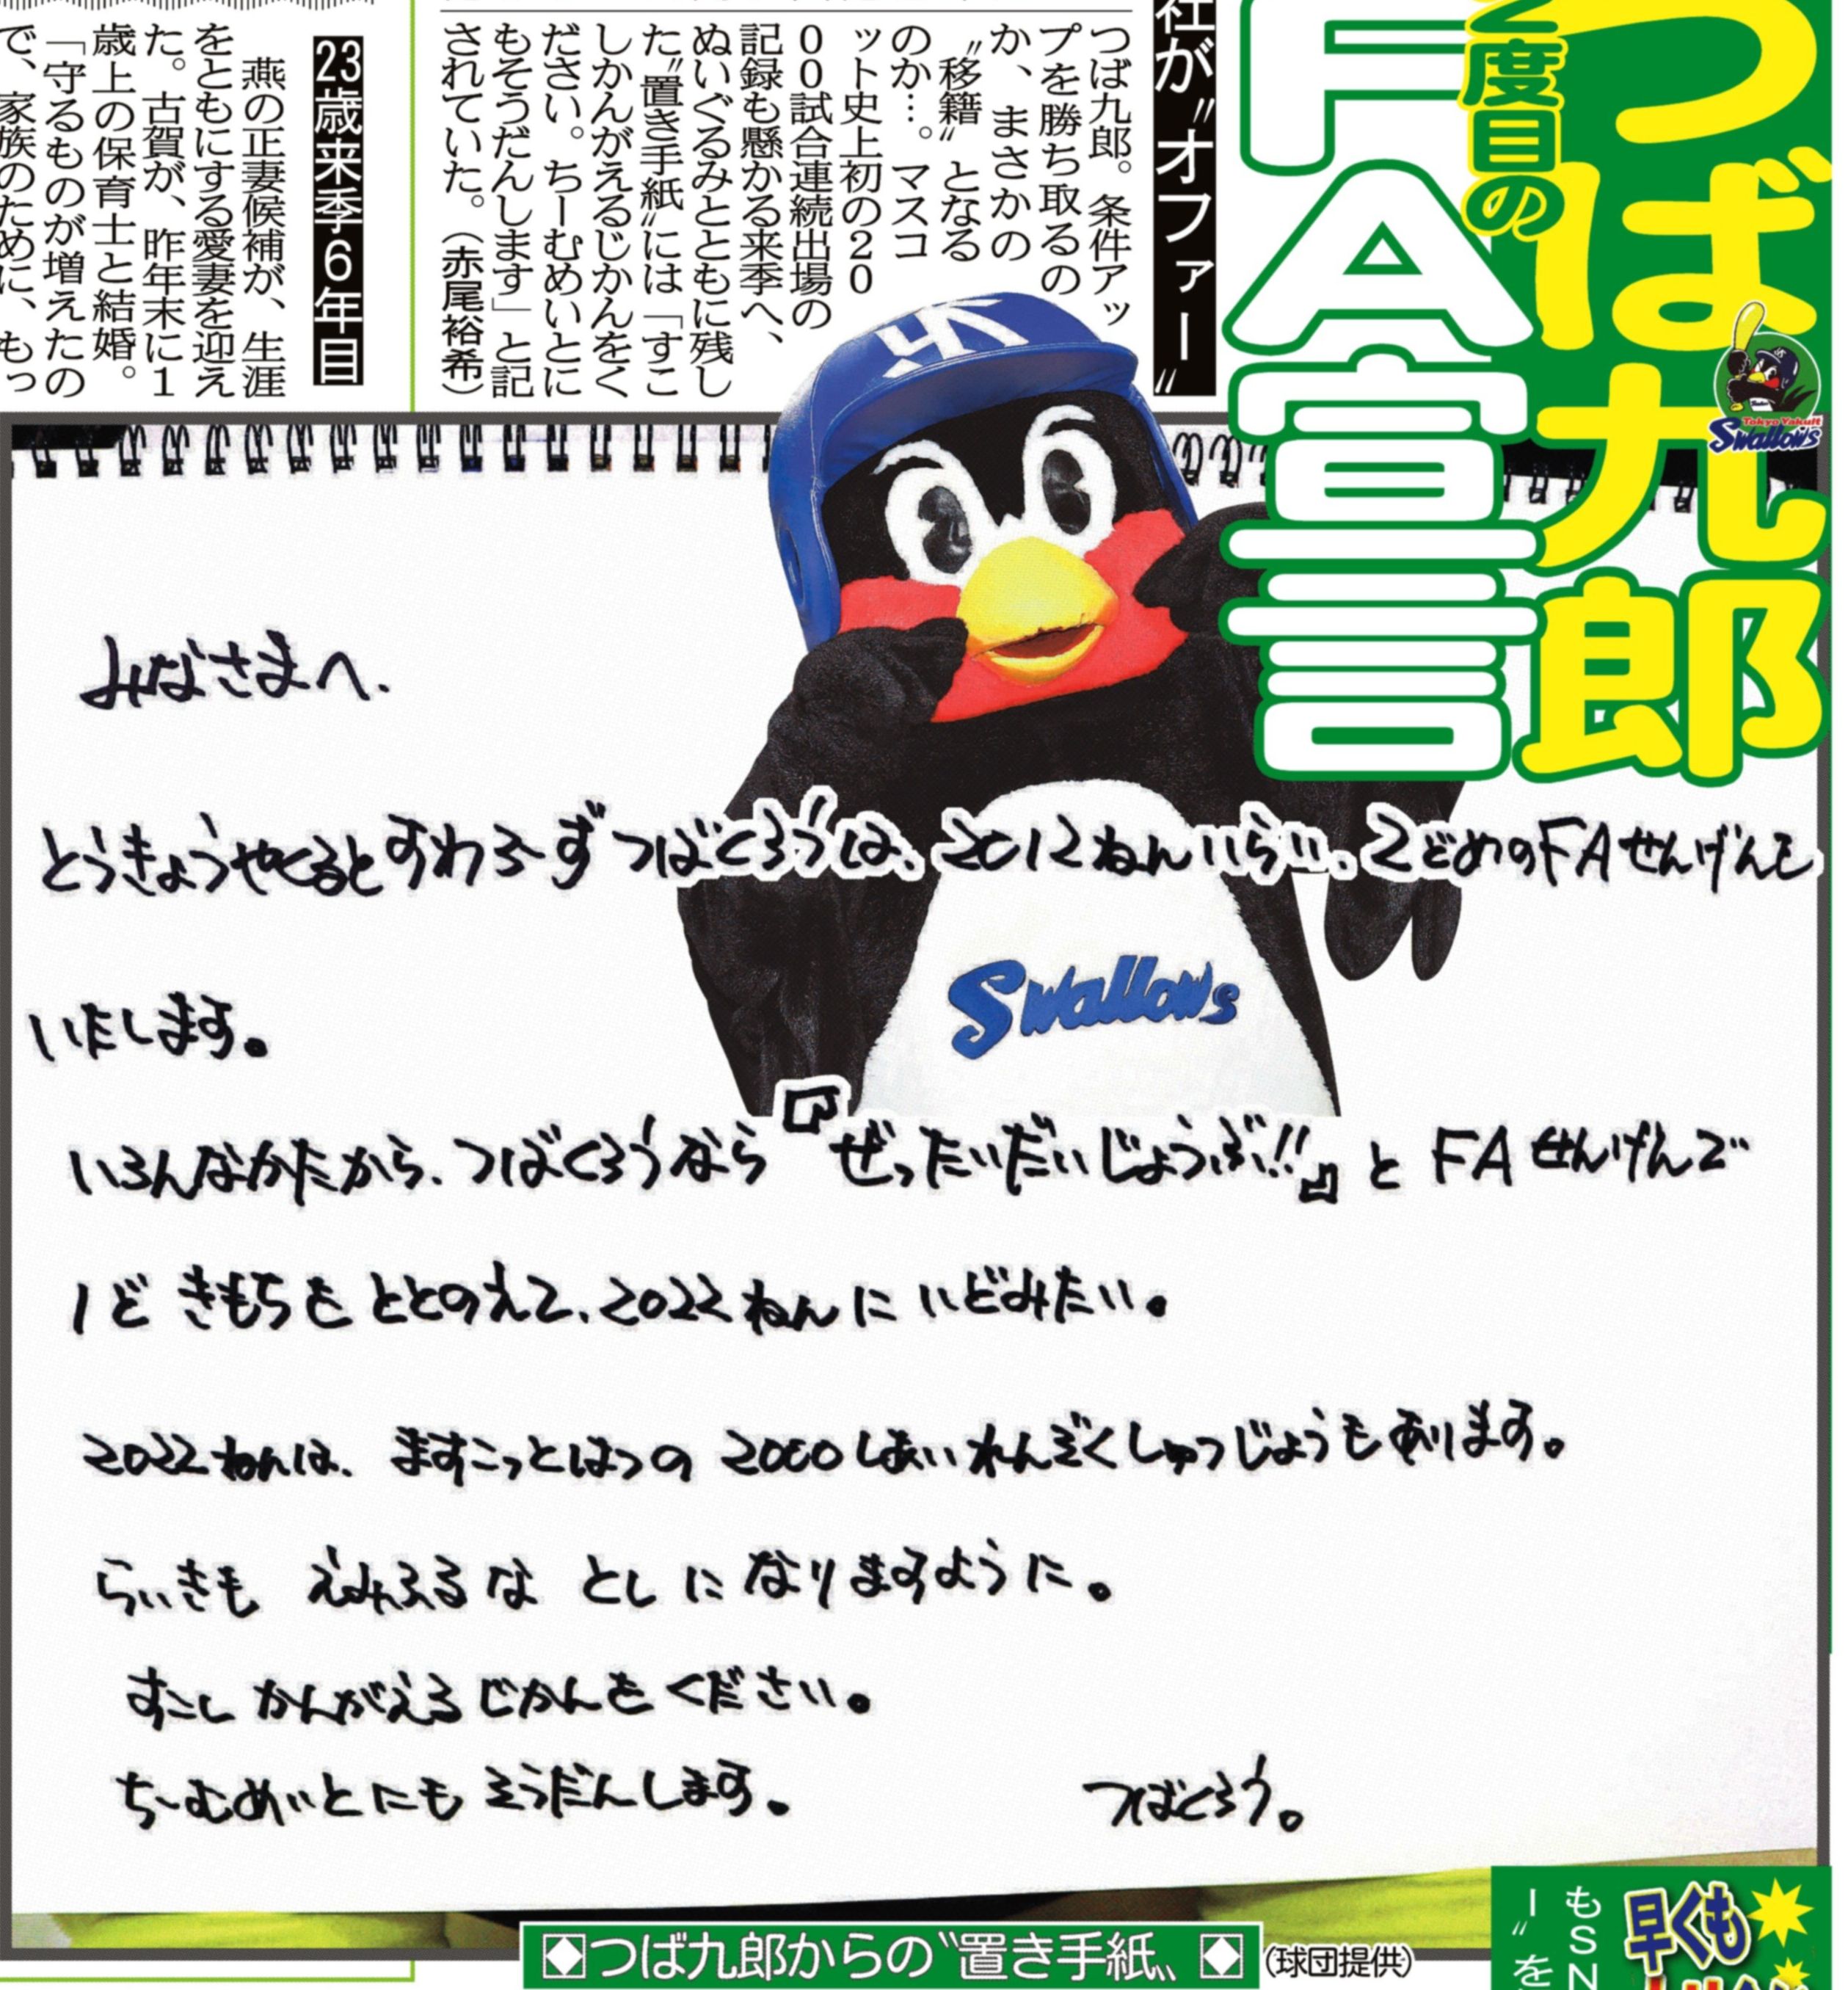 つば九郎
2度目の
FA宣言
Tokyo Yakult
Swallows
社が〝オファー〟
つば九郎。条件アッ
プを勝ち取るの
か、まさかの
〝移籍〟となる
のか…。マスコ
ット史上初の20
00試合連続出場の
記録も懸かる来季へ、
ぬいぐるみとともに残し
た〝置き手紙〟には「すこ
しかんがえるじかんをく
ださい。ちーむめいとに
もそうだんします」と記
されていた。（赤尾裕希）
23歳来季6年目
燕の正妻候補が、生涯
をともにする愛妻を迎え
た。古賀が、昨年末に1
歳上の保育士と結婚。
「守るものが増えたの
で、家族のために、もっ
みなさまへ.
とうきょうやくるとすわろーずつばくろうは、2012ねんいらい、2どめのFAせんげんを
いたします。
Swallows
いろんなかたから、つばくろうなら『ぜったいだいじょうぶ!!』とFAせんげんで
1ど きもちを ととのえて、2022ねんに いどみたい。
2022ねんは、ますこっとはつの 2000しあいれんぞくしゅつじょうもあります。
らいきも えみふるな としに なりますように。
すこし かんがえる じかんを ください。
ちーむめいとにも そうだんします。
つばくろう。
◇つば九郎からの〝置き手紙〟◇(球団提供)
早くも
もSN
ー〟を